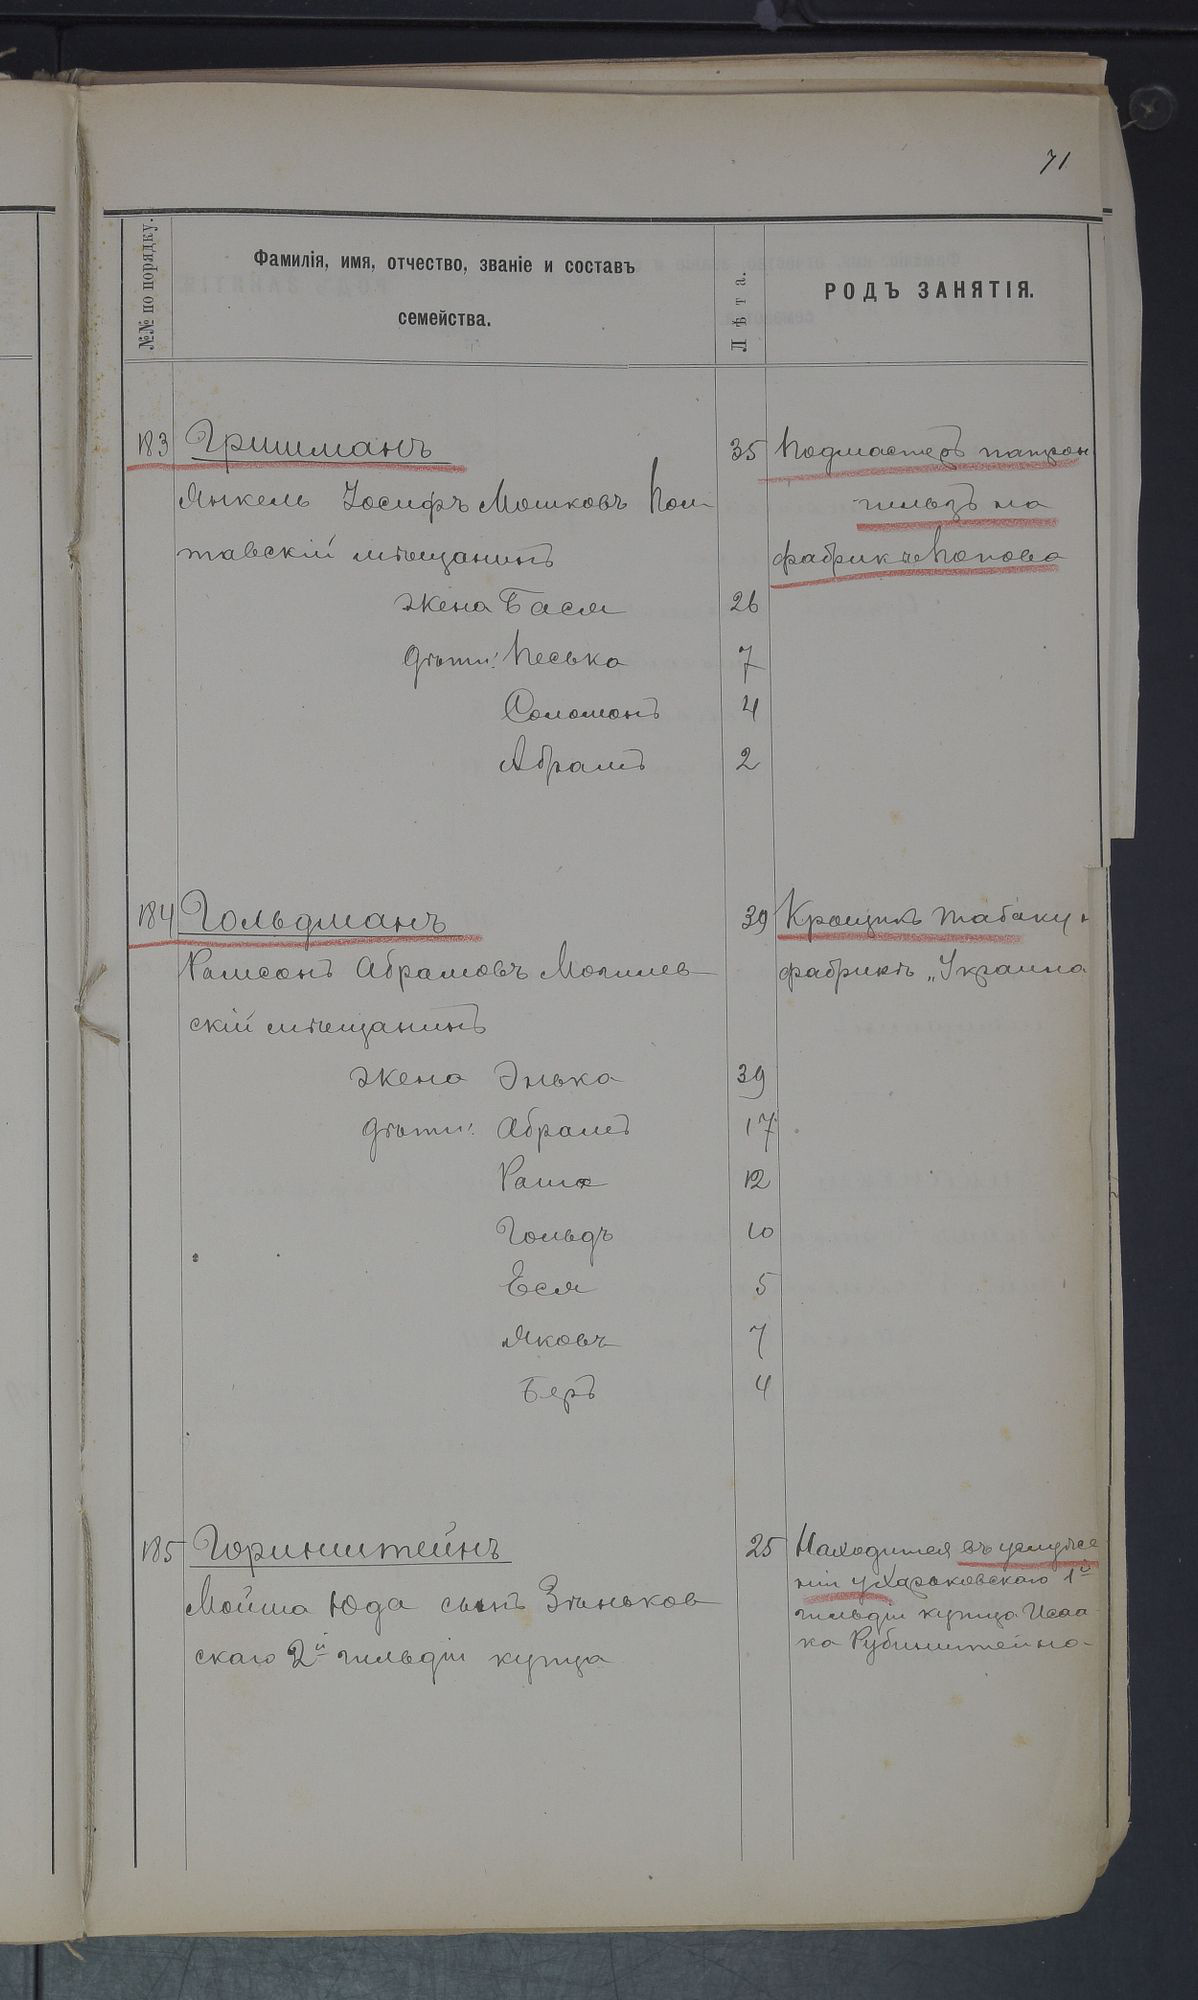 71
№№ по порядку.
Фамилія, имя, отчество, званіе и составъ
семейства.
Лѣта.
РОДЪ ЗАНЯТІЯ.
183 Гришманъ 35 Подмастеръ патрон
Янкель Іосифъ Мошковъ Пол гильзъ на
тавскій мѣщанинъ фабрикѣ Попова
жена Бася 26
дѣти: Песька 7
Соломонъ 4
Абрамъ 2
184 Гольдманъ 39 Крощикъ табаку н
Рамсонъ Абрамовъ Могилев фабрикѣ „Украина
скій мѣщанинъ
жена Энька 39
дѣти: Абрамъ 17
Раша 12
Гольдъ 10
Еся 5
Яковъ 7
Беръ 4
185 Горинштейнъ 25 Находится въ услуже
Мойша Юда сынъ Зѣньков ніи у Харьковскаго 1й
скаго 2й гильдіи купца гильдіи купца Исаа
ка Рубинштейна